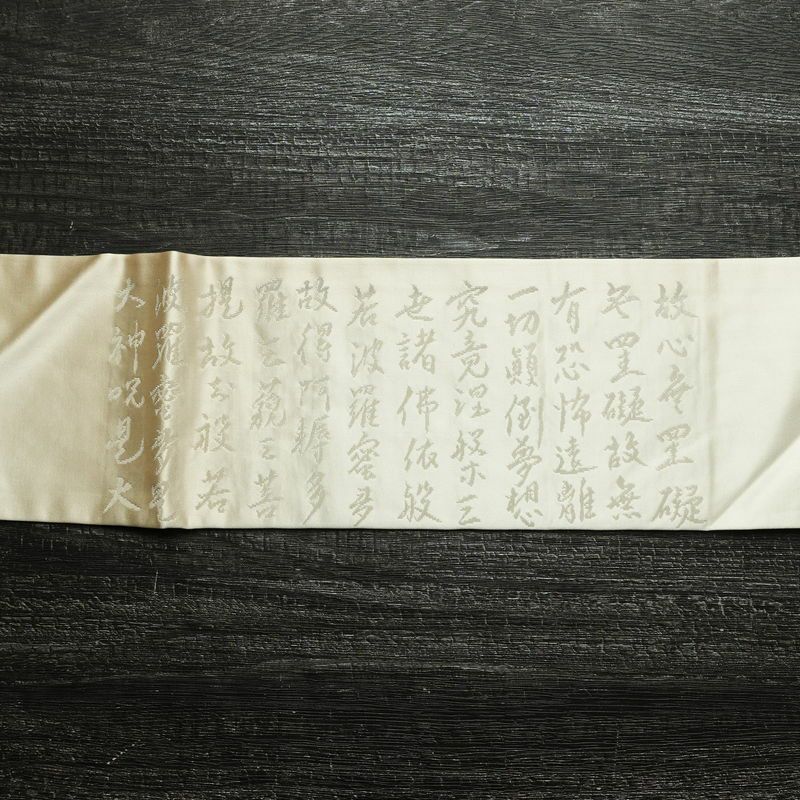 故心無罣礙
無罣礙故無
有恐怖遠離
一切顛倒夢想
究竟涅般亦三
世諸佛依般
若波羅蜜多
故得阿耨多
羅三藐三菩
提故知般若
波羅蜜多是
大神呪是大